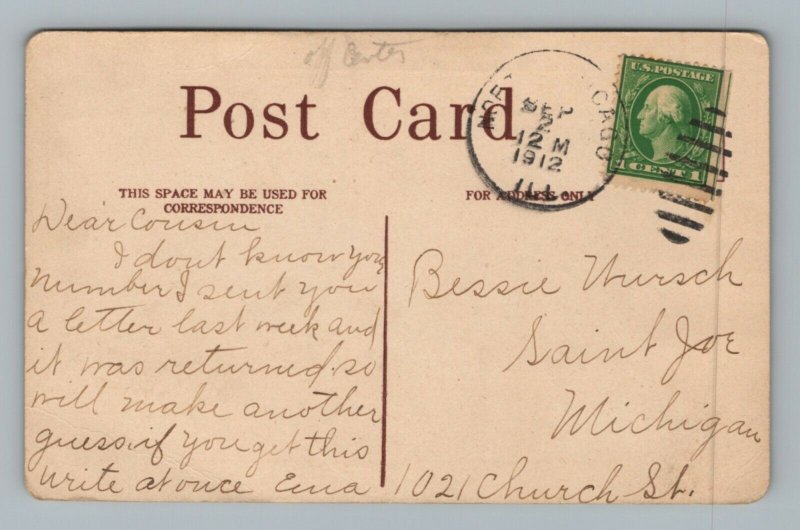 off Center
Post Card
SEP
2
12 M
1912
ILL.
U.S. POSTAGE
1 CENT 1
THIS SPACE MAY BE USED FOR
CORRESPONDENCE
FOR ADDRESS ONLY
Dear Cousin
I dont know your
number I sent you
a letter last week and
it was returned. so
will make another
guess. if you get this
write at once Ema
Bessie Wursch
Saint Joe
Michigan
1021 Church St.